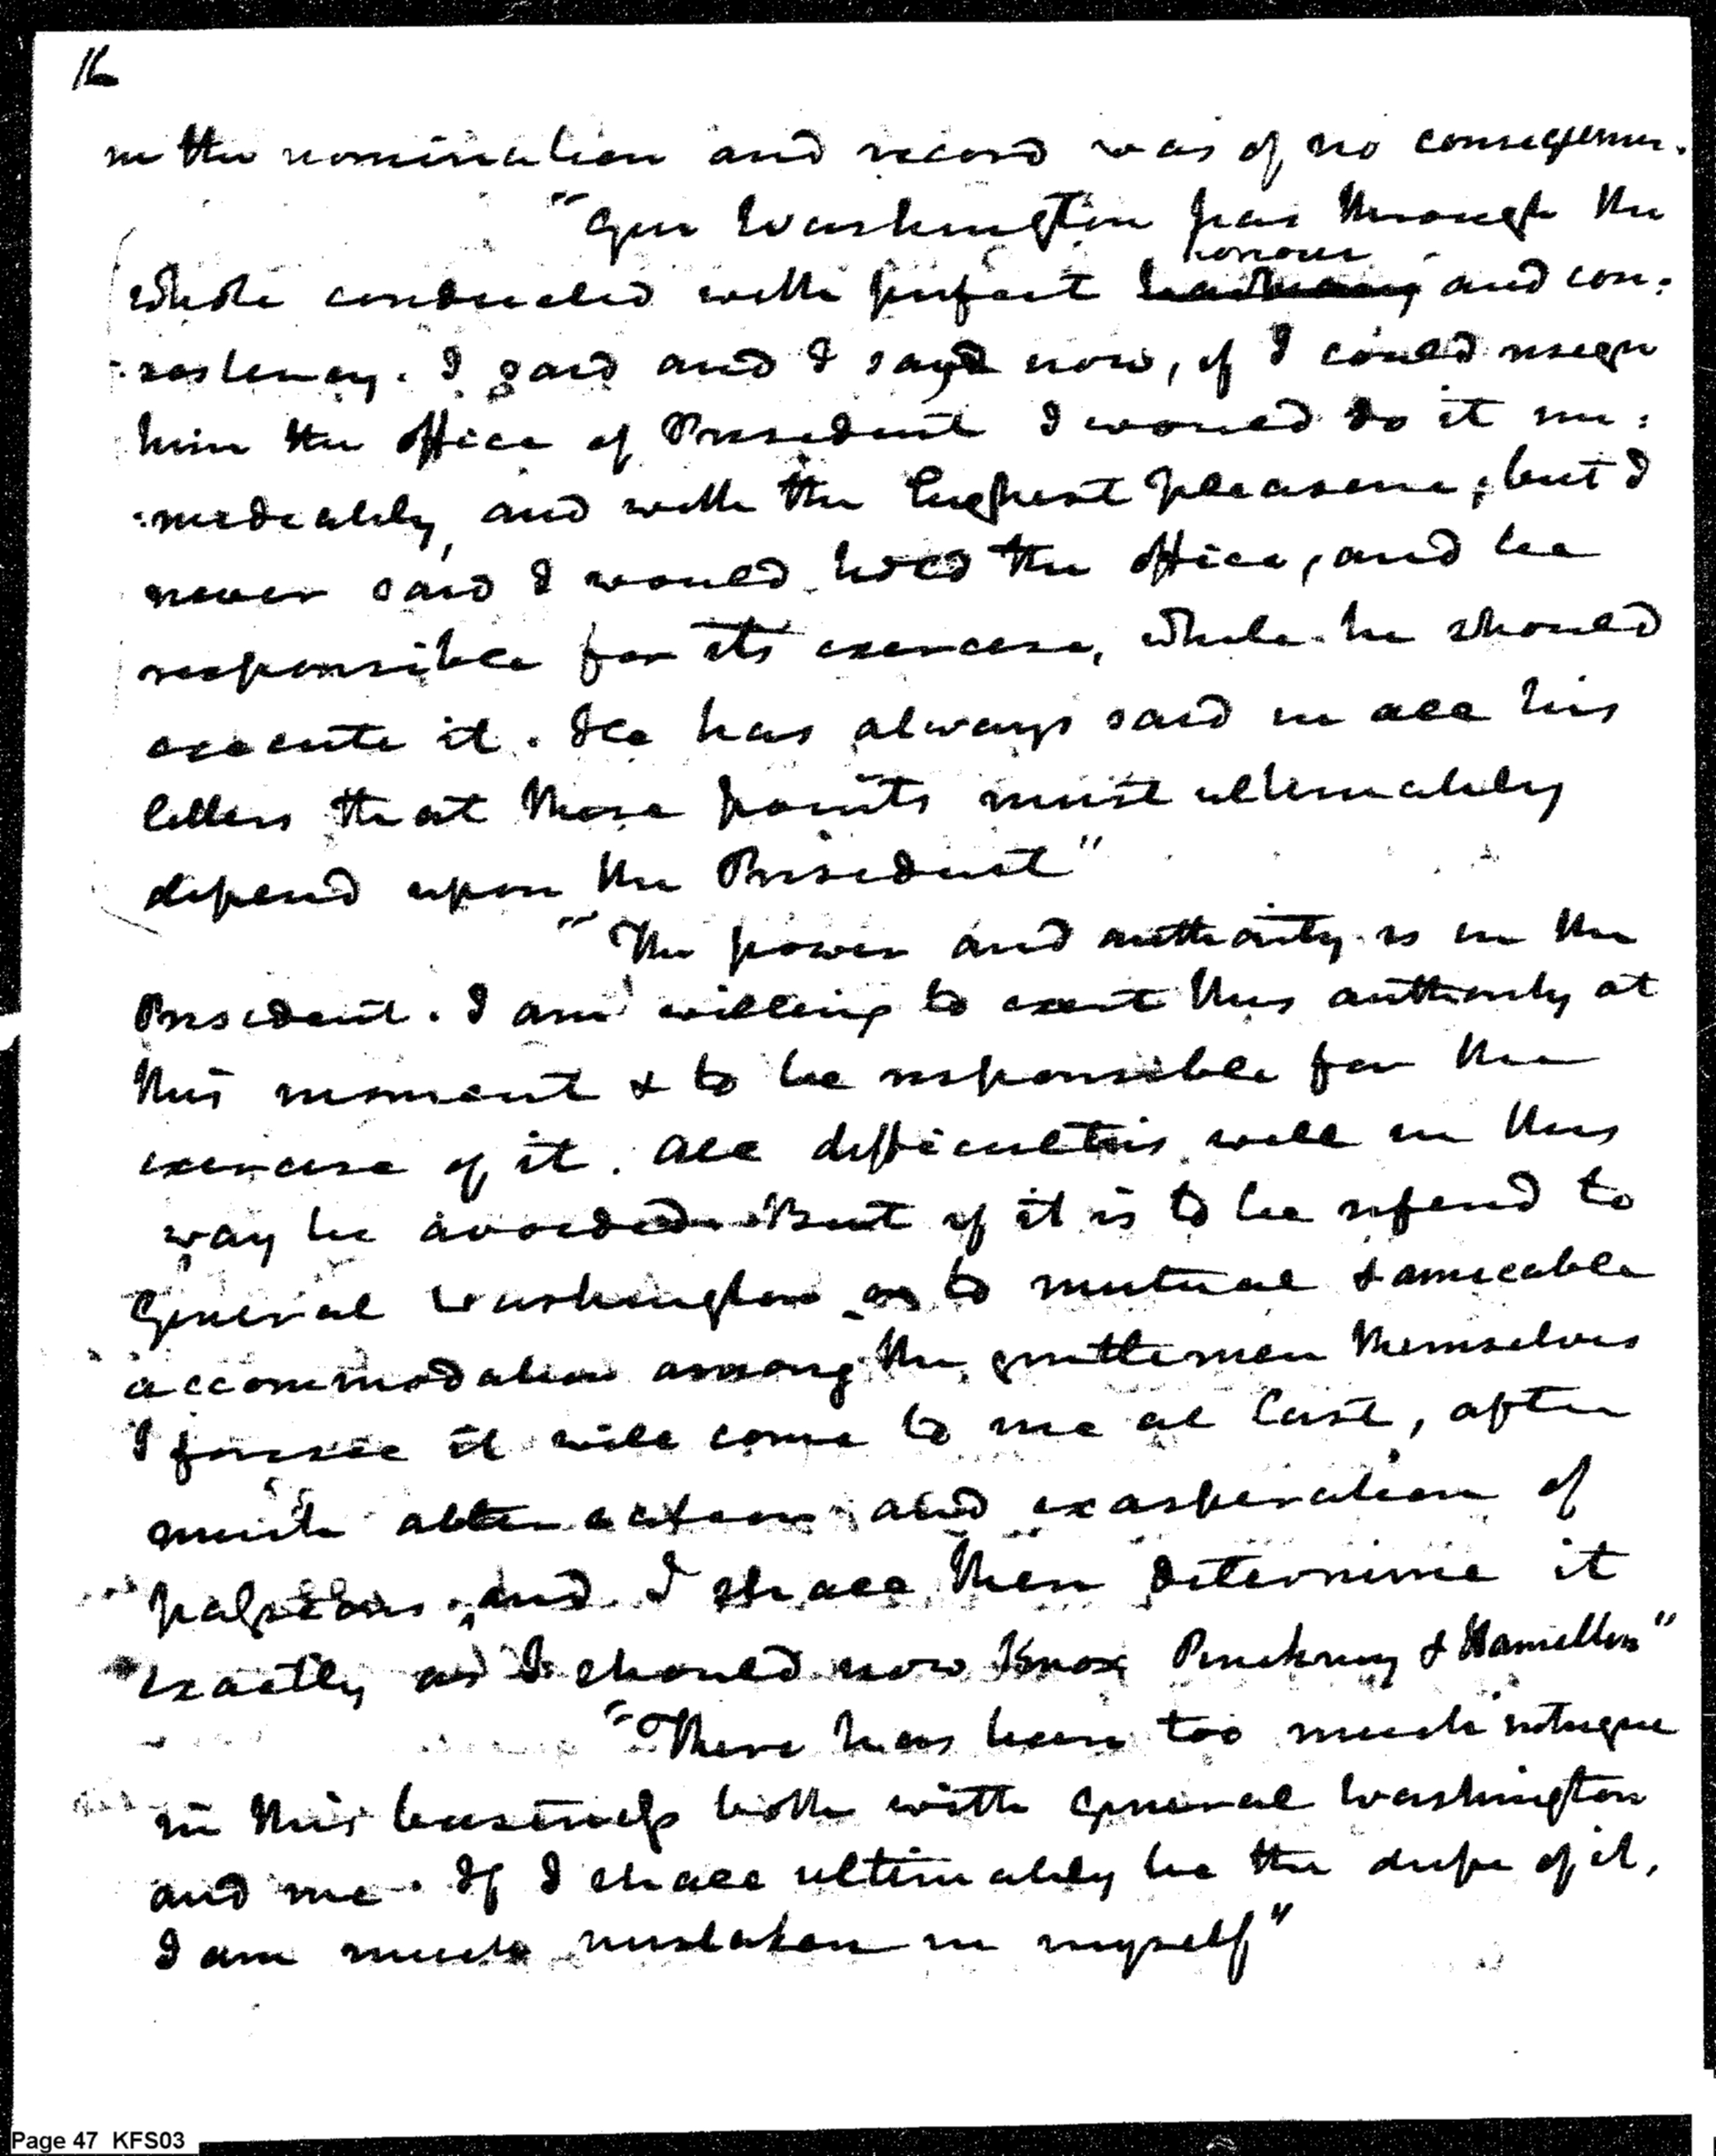 16
in the nomination and record was of no consequence.
"Gen Washington has through the
honour
whole conducted with perfect and con:
:sistency. I said and I say now, if I could resign
him the office of President I would do it im:
:mediately, and with the highest pleasure; but I
never said I would hold the office, and be
responsible for its exercise, while he should
execute it. He has always said in all his
letters that these points must ultimately
depend upon the President"
"The power and authority is in the
President. I am willing to exert this authority at
this moment & to be responsible for the
exercise of it. All difficulties will in this
way be avoided. But if it is to be referd to
General Washington or to mutual & amicable
accommodation among the gentlemen themselves
I foresee it will come to me at last, after
much altercation and exasperation of
passions, and I shall then determine it
exactly as I should now Knox, Pinckney & Hamilton"
"There has been too much intrigue
in this business both with General Washington
and me. If I shall ultimately be the dupe of it,
I am much mistaken in myself"
Page 47 KFS03